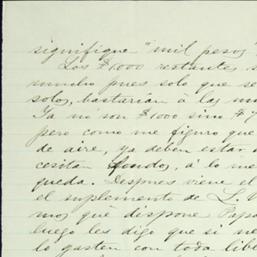 signifique "mil pesos"
Los $1000 restantes s
mucho pues solo que se
sotos, bastarían á las m
Ya no son $1000 sino $7
pero como me figuro que
de aire, ya deben estar
cesitan fondos, a' lo me
queda. Despues viene el
el suplemento de L. V
mos que dispone Papa
luego les digo que si ne
lo gasten con toda libe